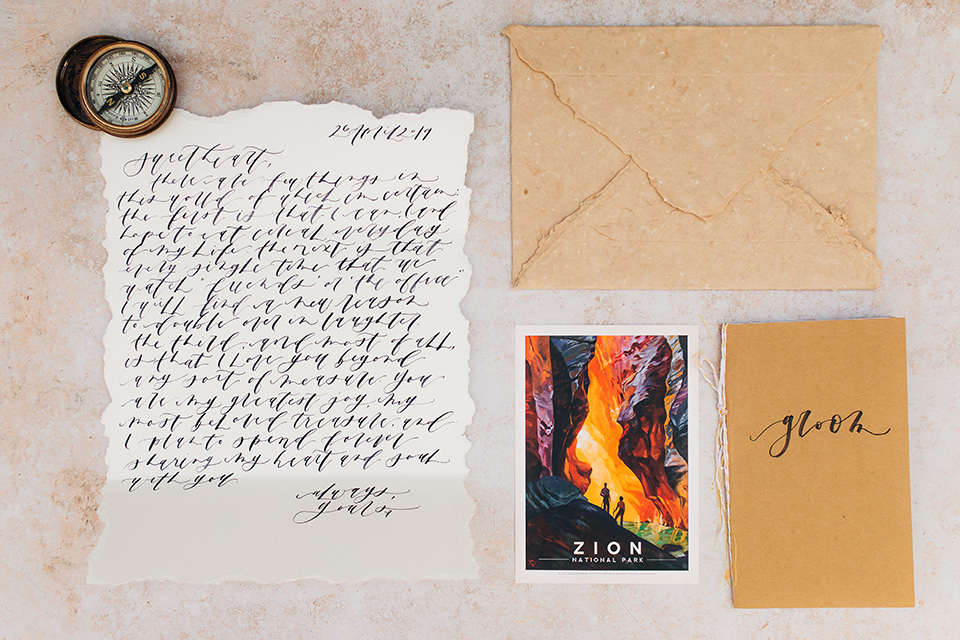 26 April 2019
sweetheart,
there are few things in
this world of which i'm certain:
the first is that i can (and
hope to) eat cereal everyday
of my life. the next is that
every single time that we
watch "friends" or "the office"
i will find a new reason
to double over in laughter.
the third, and most of all,
is that i love you beyond
any sort of measure. you
are my greatest joy, my
most beloved treasure, and
i plan to spend forever
sharing my heart and soul
with you
always,
yours
ZION
NATIONAL PARK
groom